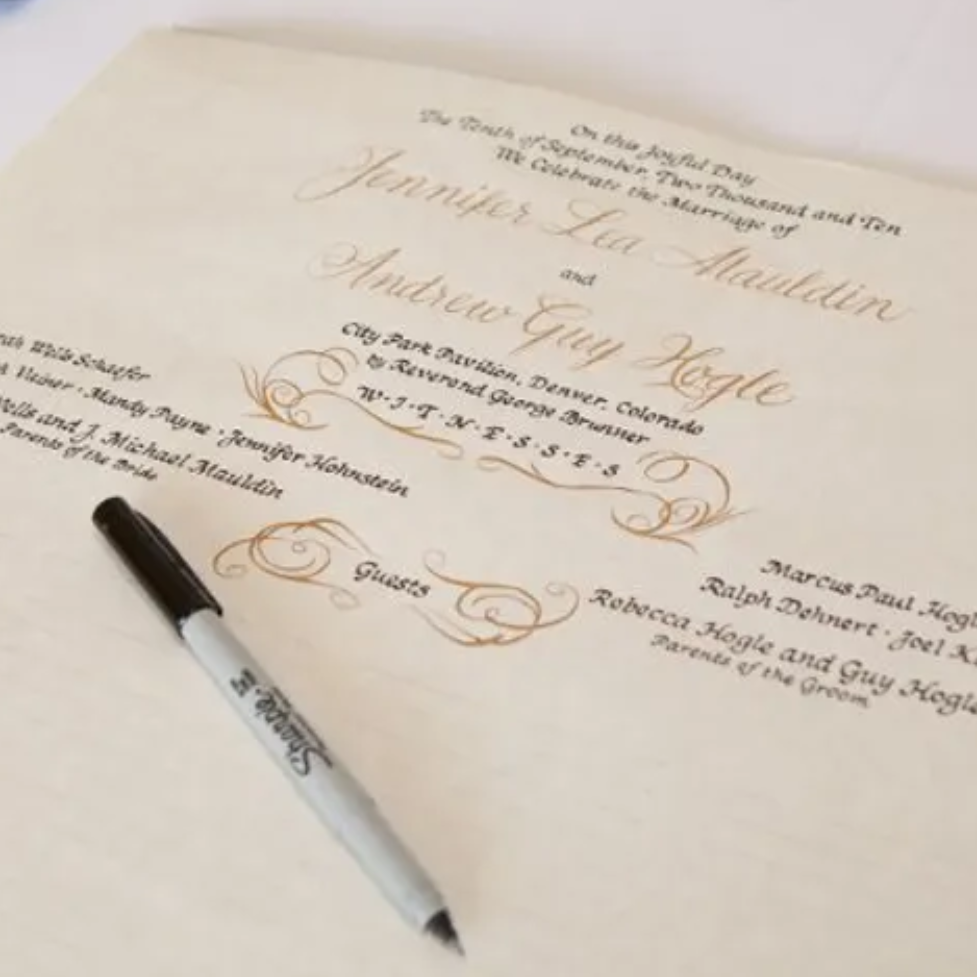 On this Joyful Day
The Tenth of September, Two Thousand and Ten
We Celebrate the Marriage of
Jennifer Lea Mauldin
and
Andrew Guy Hogle
City Park Pavilion, Denver, Colorado
by Reverend George Brunner
W·I·T·N·E·S·S·E·S
Wells Schaefer
Mandy Payne · Jennifer Hohnstein
Wells and J. Michael Mauldin
Parents of the Bride
Marcus Paul
Ralph Dehnert · Joel
Rebecca Hogle and Guy Hogle
Parents of the Groom
Guests
Sharpie